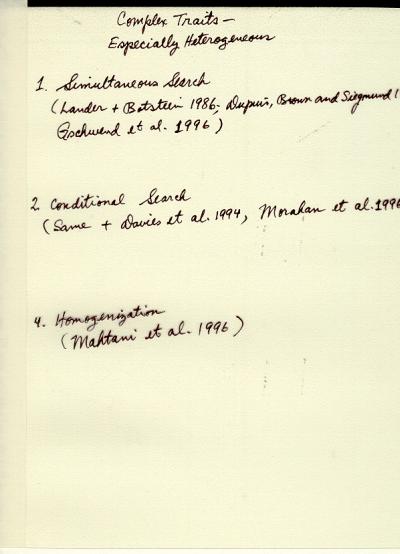 Complex Traits —
Especially Heterogeneous
1. Simultaneous Search
(Lander + Botstein 1986; Dupuis, Brown and Siegmund 1
Gschwend et al. 1996)
2. Conditional Search
(Same + Davies et al. 1994, Morahan et al. 1996
4. Homogenization
(Mahtani et al. 1996)